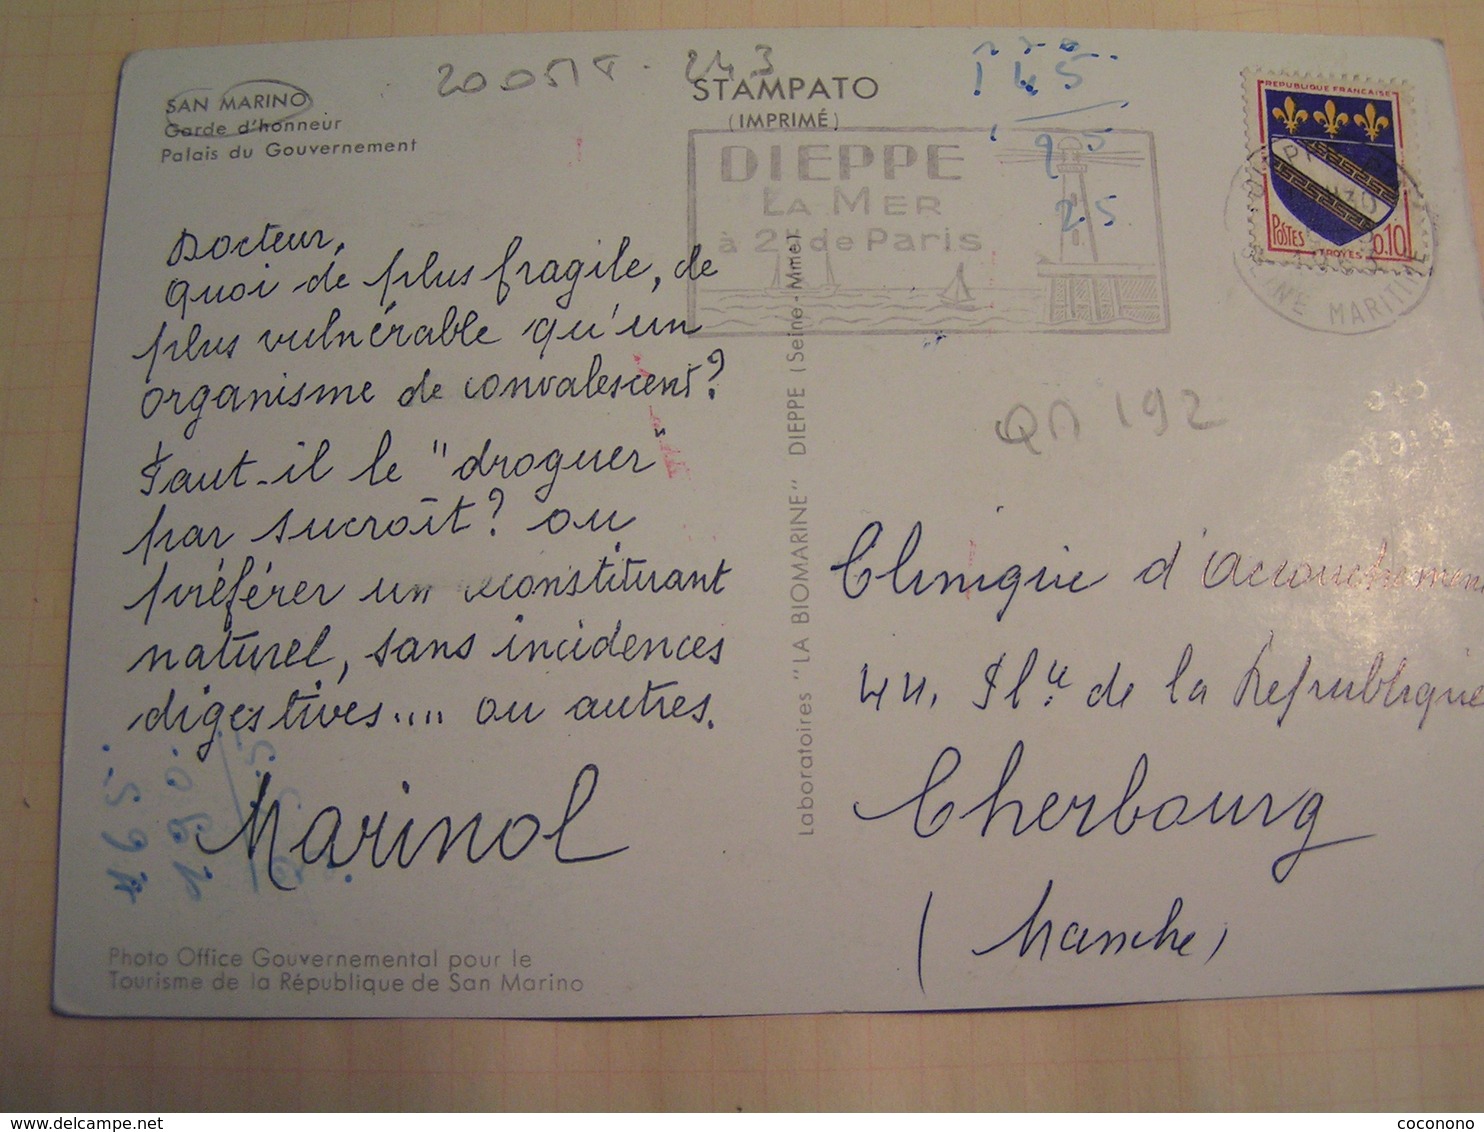 SAN MARINO
Garde d'honneur
Palais du Gouvernement
STAMPATO
(IMPRIMÉ)
243
145
25
DIEPPE
LA MER
à 2h de Paris
REPUBLIQUE FRANÇAISE
POSTES
0,10
TROYES
MARITIME
Docteur,
Quoi de plus fragile, de
plus vulnérable qu'un
organisme de convalescent?
Faut-il le "droguer"
par surcroît? ou
préférer un reconstituant
naturel, sans incidences
digestives.... ou autres.
Marinol
Photo Office Gouvernemental pour le
Tourisme de la République de San Marino
Laboratoires "LA BIOMARINE" DIEPPE (Seine-Mme)
192
Clinique d'accouchement
44. Pl. de la République
Cherbourg
(Manche)
coconono